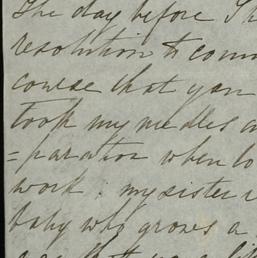 The day before I
resolution to com
course that you
took my needles a
=paration when lo
work; my sister
baby who grows a